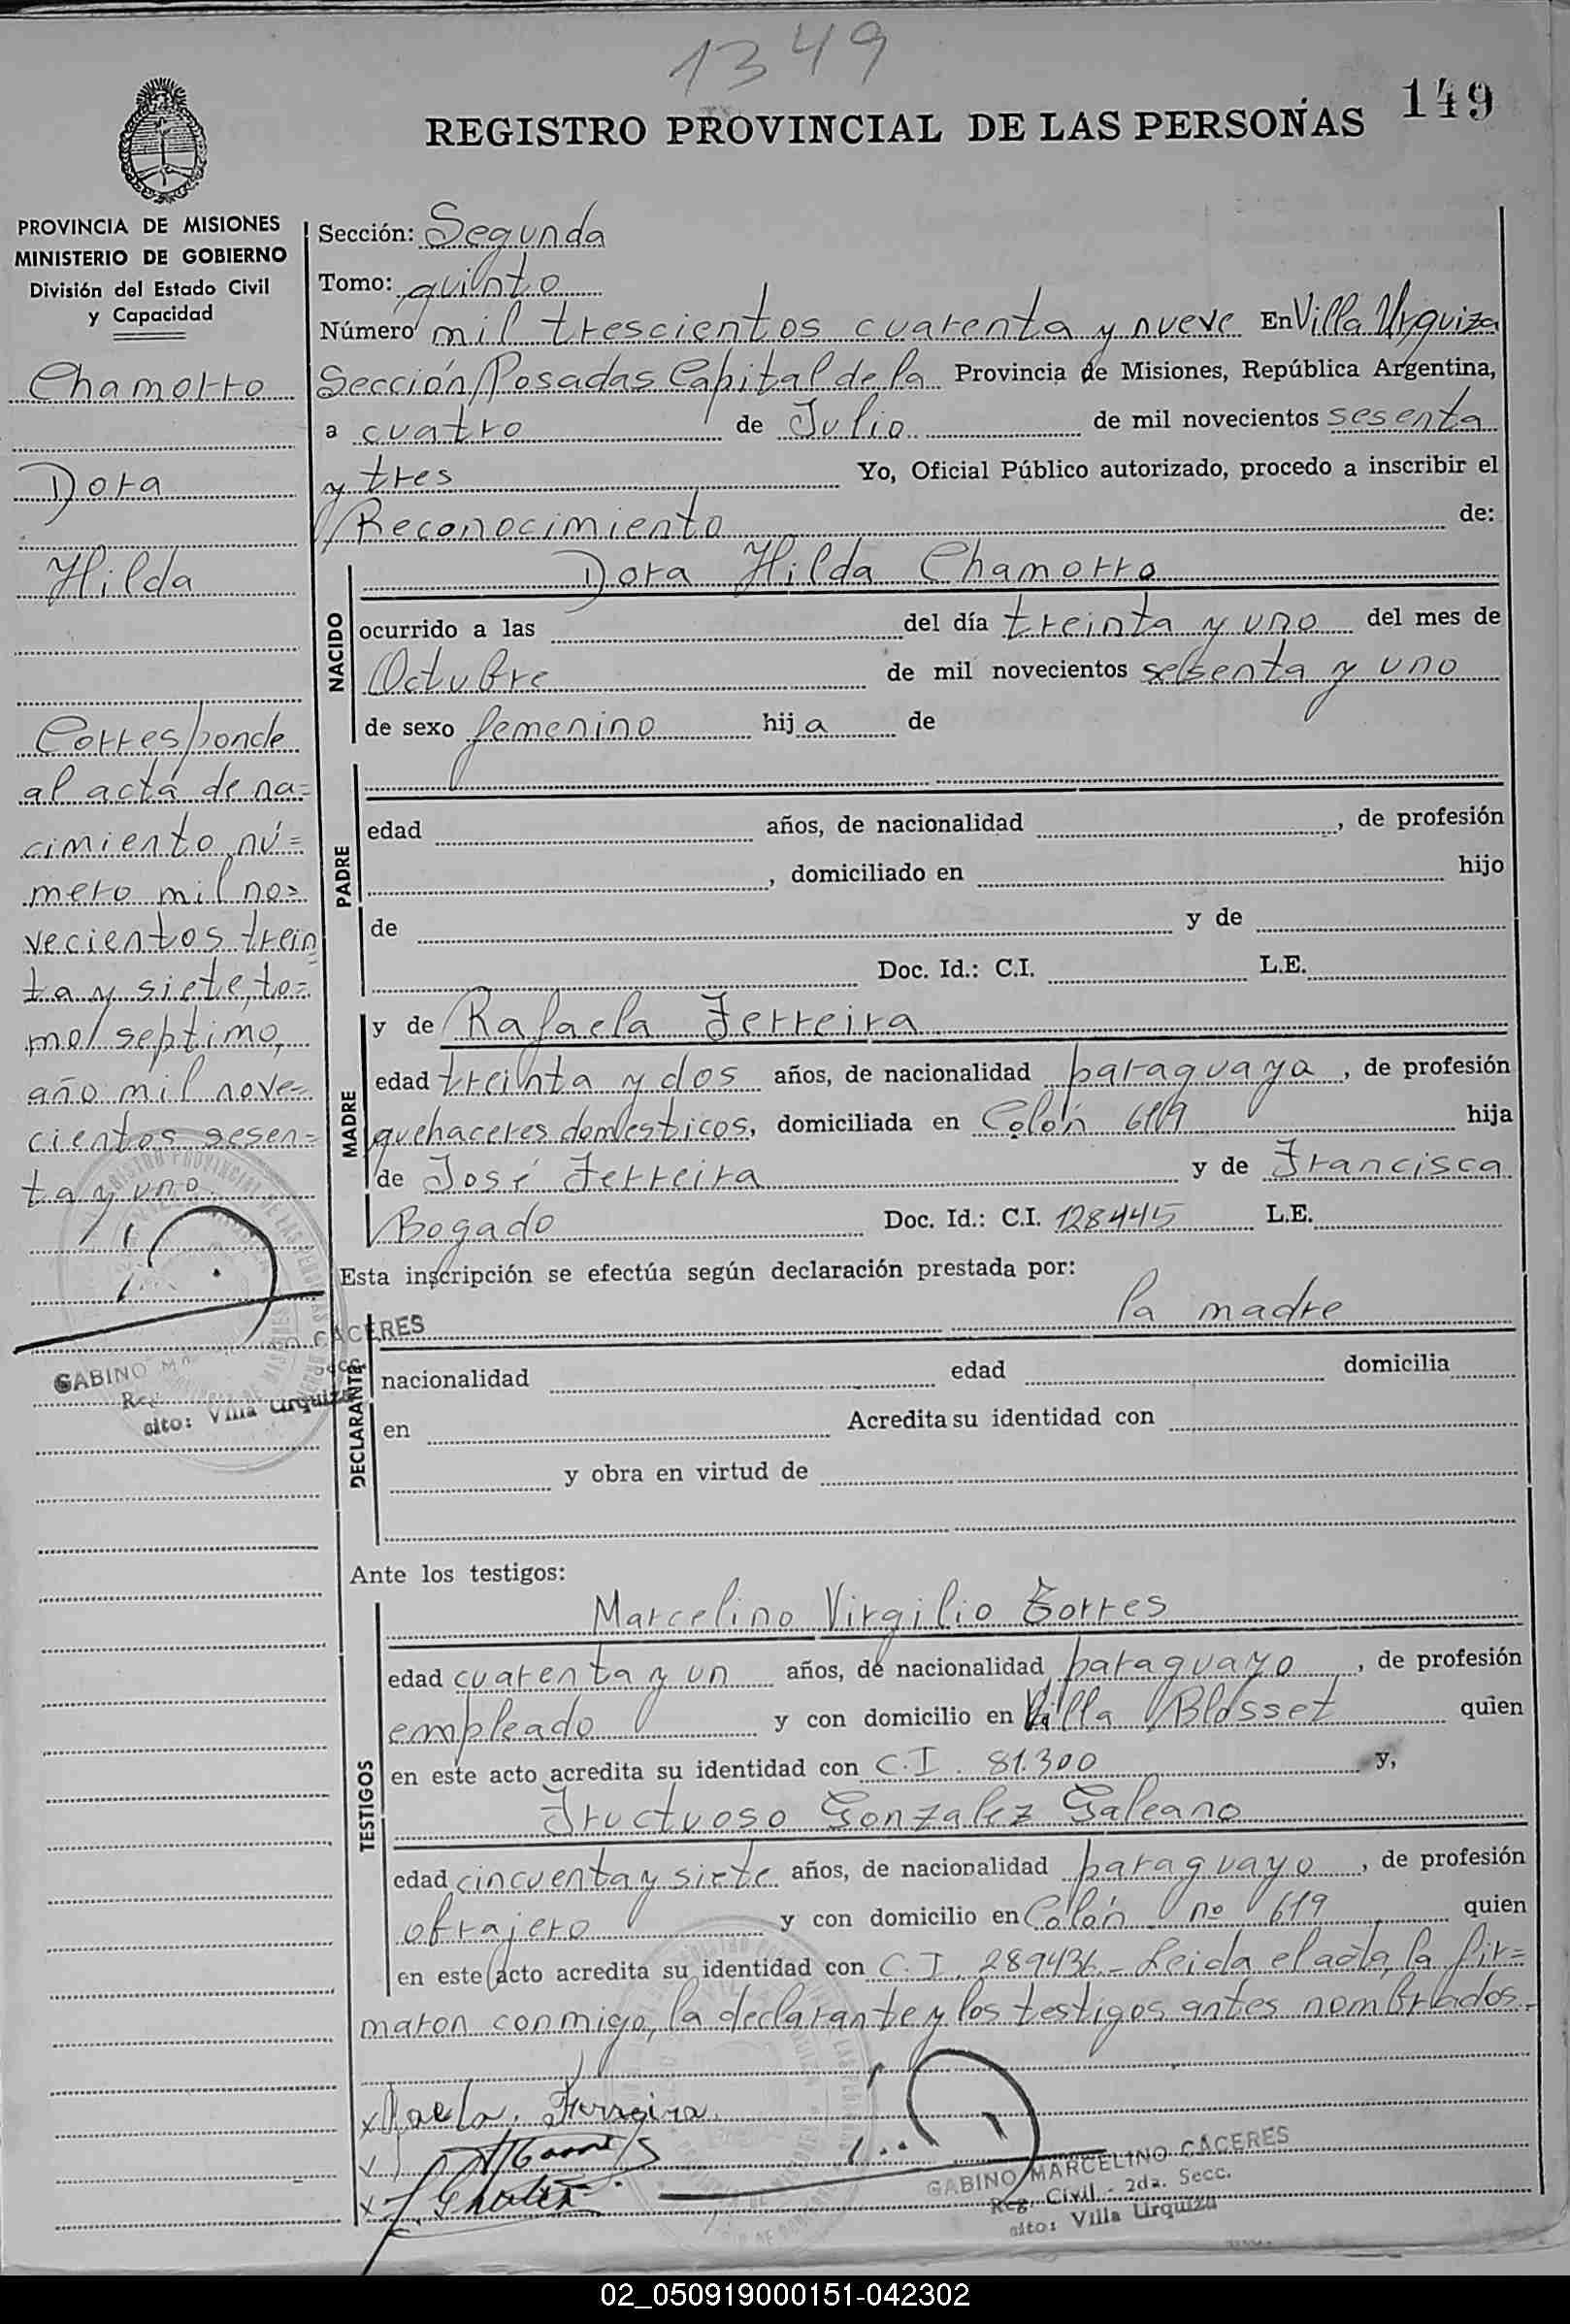 1349
REGISTRO PROVINCIAL DE LAS PERSONAS 149
PROVINCIA DE MISIONES
MINISTERIO DE GOBIERNO
División del Estado Civil
y Capacidad
Chamorro
Dora
Hilda
Corresponde
al acta de na=
cimiento nú=
mero mil no=
vecientos trein
ta y siete, to=
mo septimo,
año mil nove=
cientos sesen=
ta y uno.
GABINO
CACERES
sito: Villa Urquiza
Sección: Segunda
Tomo: quinto
Número mil trescientos cuarenta y nueve En Villa Urquiza
Sección Posadas Capital de la Provincia de Misiones, República Argentina,
a cuatro de Julio de mil novecientos sesenta
y tres Yo, Oficial Público autorizado, procedo a inscribir el
Reconocimiento de:
NACIDO
Dora Hilda Chamorro
ocurrido a las del día treinta y uno del mes de
Octubre de mil novecientos sesenta y uno
de sexo femenino hija de
PADRE
edad años, de nacionalidad , de profesión
, domiciliado en hijo
de y de
Doc. Id.: C.I. L.E.
MADRE
y de Rafaela Ferreira
edad treinta y dos años, de nacionalidad paraguaya, de profesión
quehaceres domesticos, domiciliada en Colón 619 hija
de José Ferreira y de Francisca
Bogado Doc. Id.: C.I. 128445 L.E.
Esta inscripción se efectúa según declaración prestada por:
la madre
DECLARANTE
nacionalidad edad domicilia
en Acredita su identidad con
y obra en virtud de
Ante los testigos:
TESTIGOS
Marcelino Virgilio Torres
edad cuarenta y un años, de nacionalidad paraguayo, de profesión
empleado y con domicilio en Villa Blosset quien
en este acto acredita su identidad con C.I. 81.300 y,
Fructuoso Gonzalez Galeano
edad cincuenta y siete años, de nacionalidad paraguayo, de profesión
obrajero y con domicilio en Colón no 619 quien
en este acto acredita su identidad con C.I. 289436.- Leida el acta, la fir=
maron conmigo, la declarante y los testigos antes nombrados.-
Ferreira
GABINO MARCELINO CACERES
Reg. Civil - 2da. Secc.
sito: Villa Urquiza
02_050919000151-042302